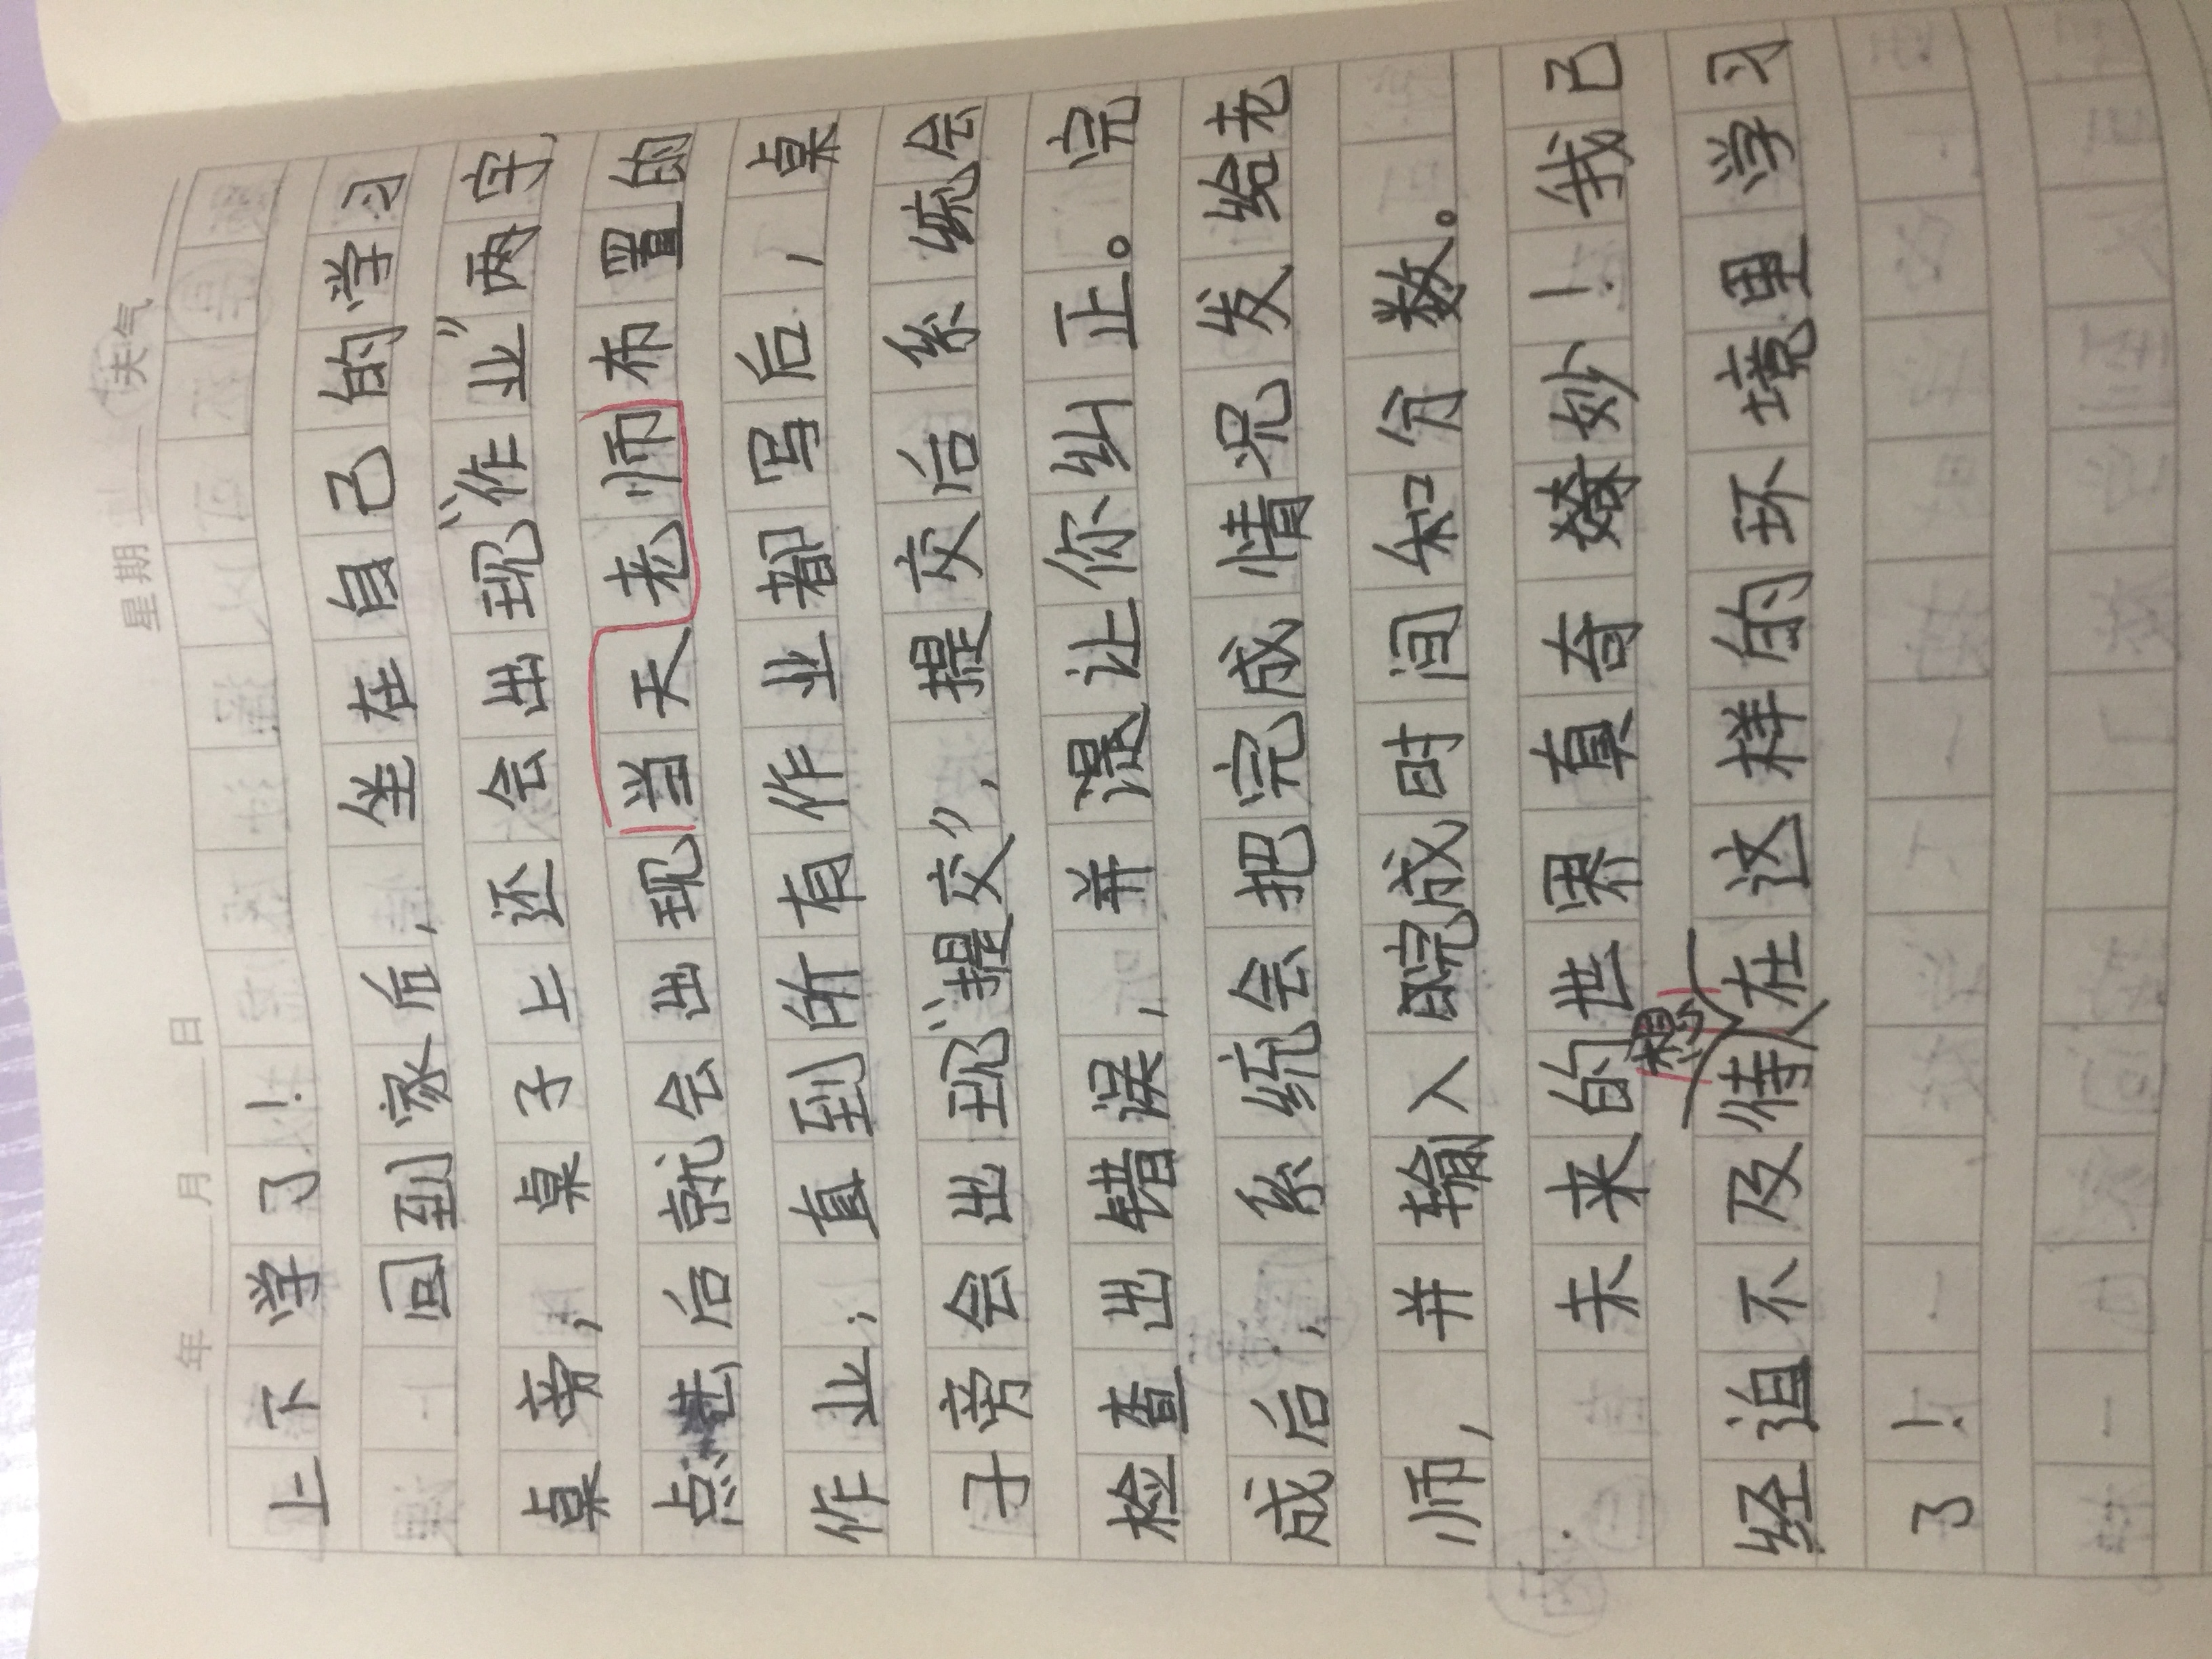 年 月 日 星期 天气
上下学了！
回到家后，坐在自己的学习
桌旁，桌子上还会出现“作业”两字，
点击后就会出现当天老师布置的
作业，直到所有作业都写后，桌
子旁会出现“提交”，提交后系统会
检查出错误，并让你纠正。完
成后，系统会把完成情况发给老
师，并输入完成时间和分数。
未来的世界真奇妙！我己
经迫不及待想在这样的环境里学习
了！